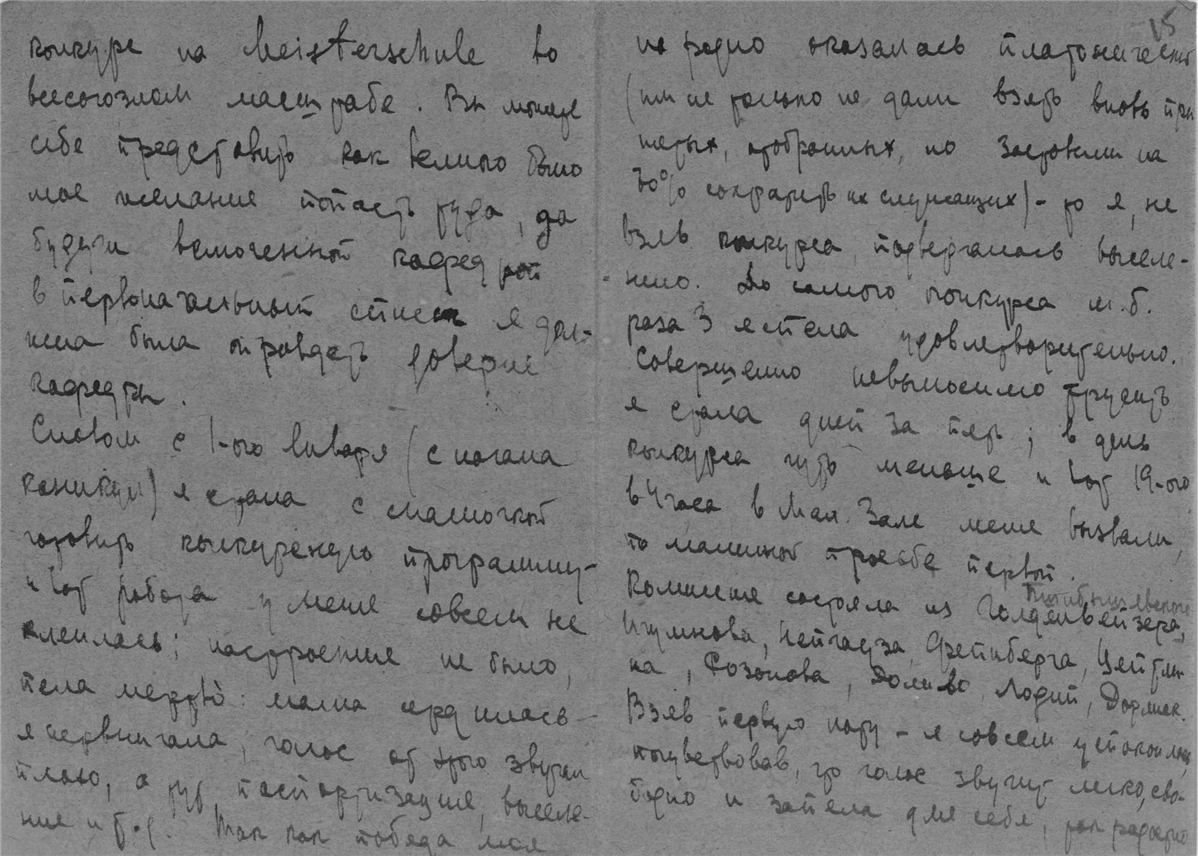 конкурс на Meisterschule во
всесоюзном масштабе. Вы можете
себе представить как велико было
мое желание попасть туда, да
будучи включенной кафедрой
в первоначальный список я дол-
жна была оправдать доверие
кафедры.
Словом с 1-ого Января (с начала
каникул) я стала с мамочкой
готовить конкурсную программу –
и вот работа у меня совсем не
клеилась; настроения не было,
пела мертво: мама сердилась –
я нервничала, голос от этого звучал
плохо, а тут, паспортизация, выселе-
ние и т.д. Так как победа моя
15
на радио оказалась платонической
(им не только не дали взять вновь при
нятых, отобранных, но заставили на
30% сократить их служащих) – то я, не
взяв конкурса, подвергалась выселе-
нию. До самого конкурса м.б.
раза 3 я спела удовлетворительно.
Совершенно невыносимо трусить
я стала дней за пять; в день
конкурса чуть меньше и вот 19-ого
в 4 часа в Мал. Зале меня вызвали,
по маминой просьбе первой.
Комиссия состояла из Гольденвейзера,
Игумнова, Нейгауза, Фейнберга, Цейтли-
на, Созонова, Доливо, Лодий, Дорлиак.
Взяв первую ноту – я совсем успокоилась,
почувствовав, что голос звучит легко, сво-
бодно и запела для себя, так радостно